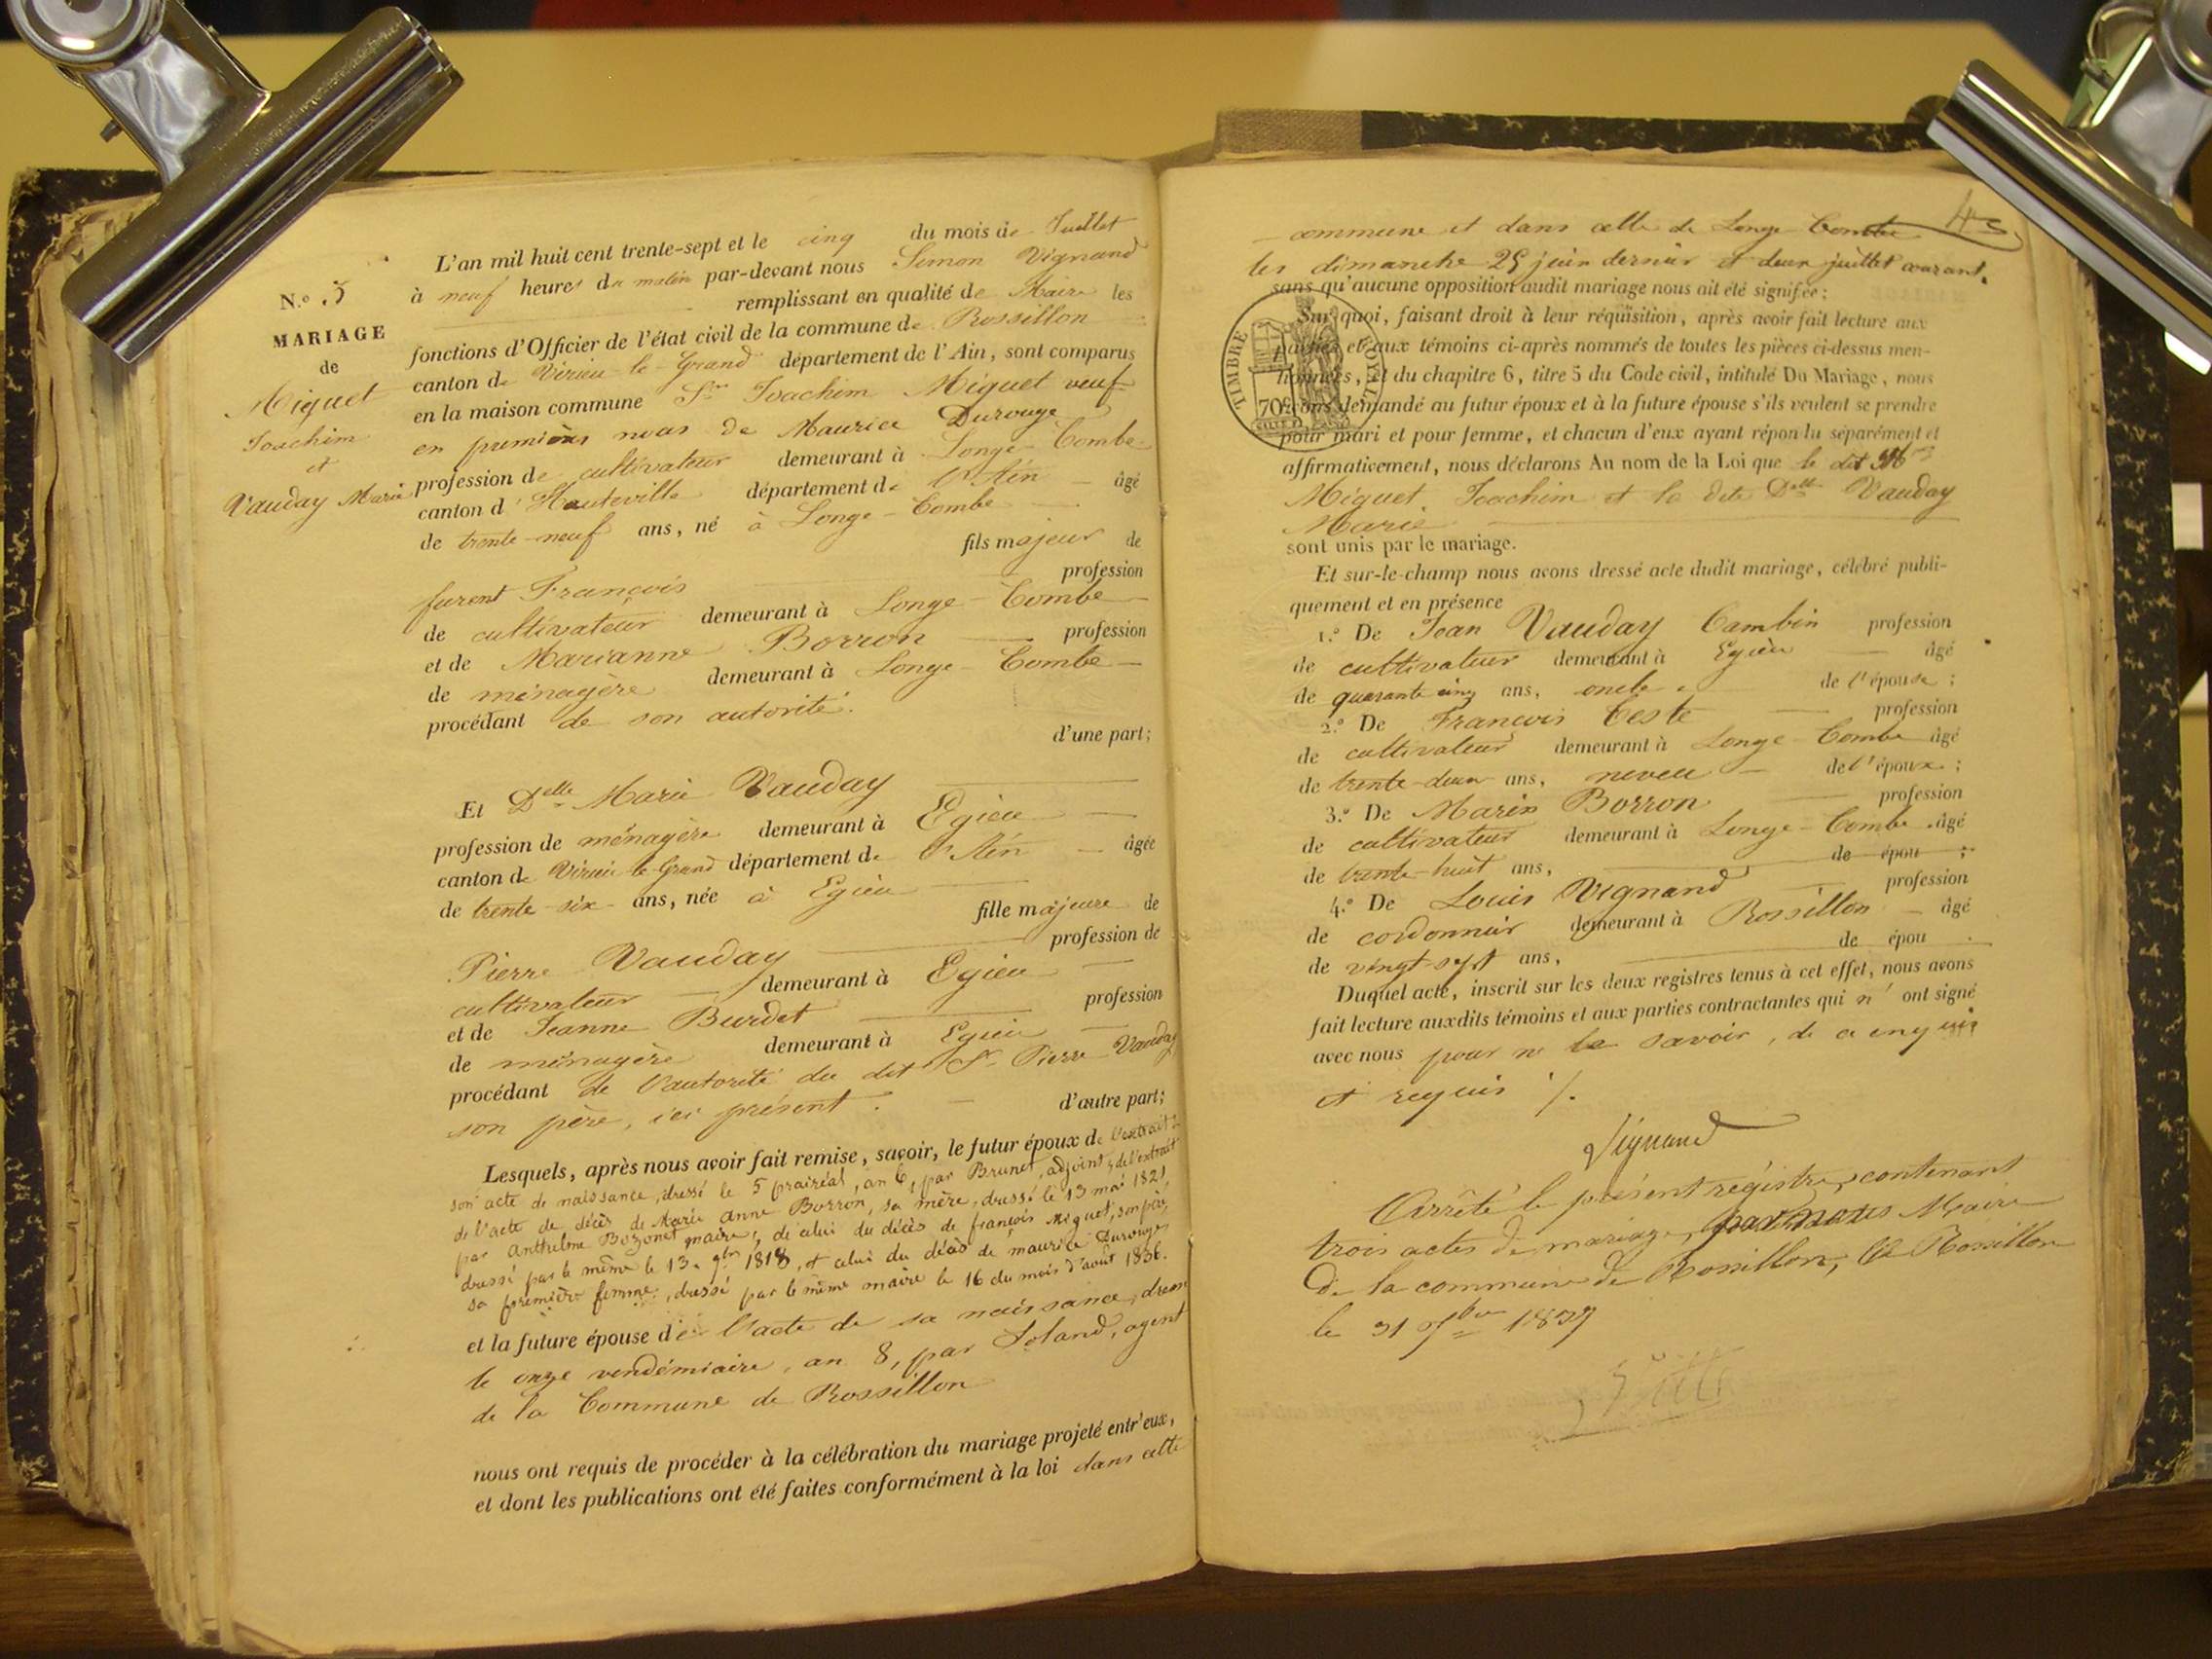 N.º 3
MARIAGE
de
Miguet
Joachim
et
Vauday Marie
L'an mil huit cent trente-sept et le cinq du mois de Juillet
à neuf heures du matin par-devant nous Simon Vignand
remplissant en qualité de Maire les
fonctions d'Officier de l'état civil de la commune de Rossillon
canton de Virieu-le-Grand département de l'Ain, sont comparus
en la maison commune Sr Joachim Miguet veuf
en premières noces de Maurice Durouge
profession de cultivateur demeurant à Longe-Combe
canton d'Hauteville département de l'Ain âgé
de trente-neuf ans, né à Longe-Combe
fils majeur de
furent François profession
de cultivateur demeurant à Longe-Combe
et de Marianne Borron profession
de ménagère demeurant à Longe-Combe
procédant de son autorité.
d'une part;
Et Delle Marie Vauday
profession de ménagère demeurant à Egieu
canton de Virieu-le-Grand département de l'Ain âgée
de trente-six ans, née à Egieu
fille majeure de
Pierre Vauday profession de
cultivateur demeurant à Egieu
et de Jeanne Burdet profession
de ménagère demeurant à Egieu
procédant de l'autorité du dit Sr Pierre Vauday
son père, ici présent. d'autre part;
Lesquels, après nous avoir fait remise, savoir, le futur époux de l'extrait:
son acte de naissance, dressé le 5 prairéal, an 6, par Brunet, adjoint, de l'extrait
de l'acte de décès de Marie Anne Borron, sa mère, dressé le 13 mai 1821,
par Anthelme Bozonet maire; de celui du décès de françois Miguet, son père,
dressé par le même le 13. 9bre 1818, et celui du décès de maurice Durouge,
sa première femme, dressé par le même maire le 16 du mois d'août 1836.
et la future épouse de l'acte de sa naissance, dressé
le onze vendémiaire, an 8, par Joland, agent
de la Commune de Rossillon
nous ont requis de procéder à la célébration du mariage projeté entr'eux,
et dont les publications ont été faites conformément à la loi dans cette
commune et dans celle de Longe-Combe
les dimanche 25 juin dernier et deux juillet courant.
sans qu'aucune opposition audit mariage nous ait été signifée;
Sur quoi, faisant droit à leur réquisition, après avoir fait lecture aux
parties et aux témoins ci-après nommés de toutes les pièces ci-dessus men-
tionnées, et du chapitre 6, titre 5 du Code civil, intitulé Du Mariage, nous
avons demandé au futur époux et à la future épouse s'ils veulent se prendre
pour mari et pour femme, et chacun d'eux ayant répondu séparément et
affirmativement, nous déclarons Au nom de la Loi que le dit
Miguet Joachim et la dite Delle Vauday
Marie
sont unis par le mariage.
Et sur-le-champ nous avons dressé acte dudit mariage, célébré publi-
quement et en présence
1.º De Jean Vauday Cambin profession
de cultivateur demeurant à Egieu âgé
de quarante cinq ans, oncle de l'épouse;
2.º De François Ceste profession
de cultivateur demeurant à Longe-Combe âgé
de trente-deux ans, neveu de l'époux;
3.º De Marin Borron profession
de cultivateur demeurant à Longe-Combe âgé
de trente-huit ans, de épou ;
4.º De Louis Vignand profession
de cordonnier demeurant à Rossillon âgé
de vingt-sept ans, de épou
Duquel acte, inscrit sur les deux registres tenus à cet effet, nous avons
fait lecture auxdits témoins et aux parties contractantes qui n'ont signé
avec nous pour ne le savoir, de ce enquis
et requis ./.
Vignand
Arrêté le présent régistre, contenant
trois actes de mariage, par nous Maire
de la commune de Rossillon, à Rossillon
le 31 Xbre 1837
TIMBRE ROYAL
70c